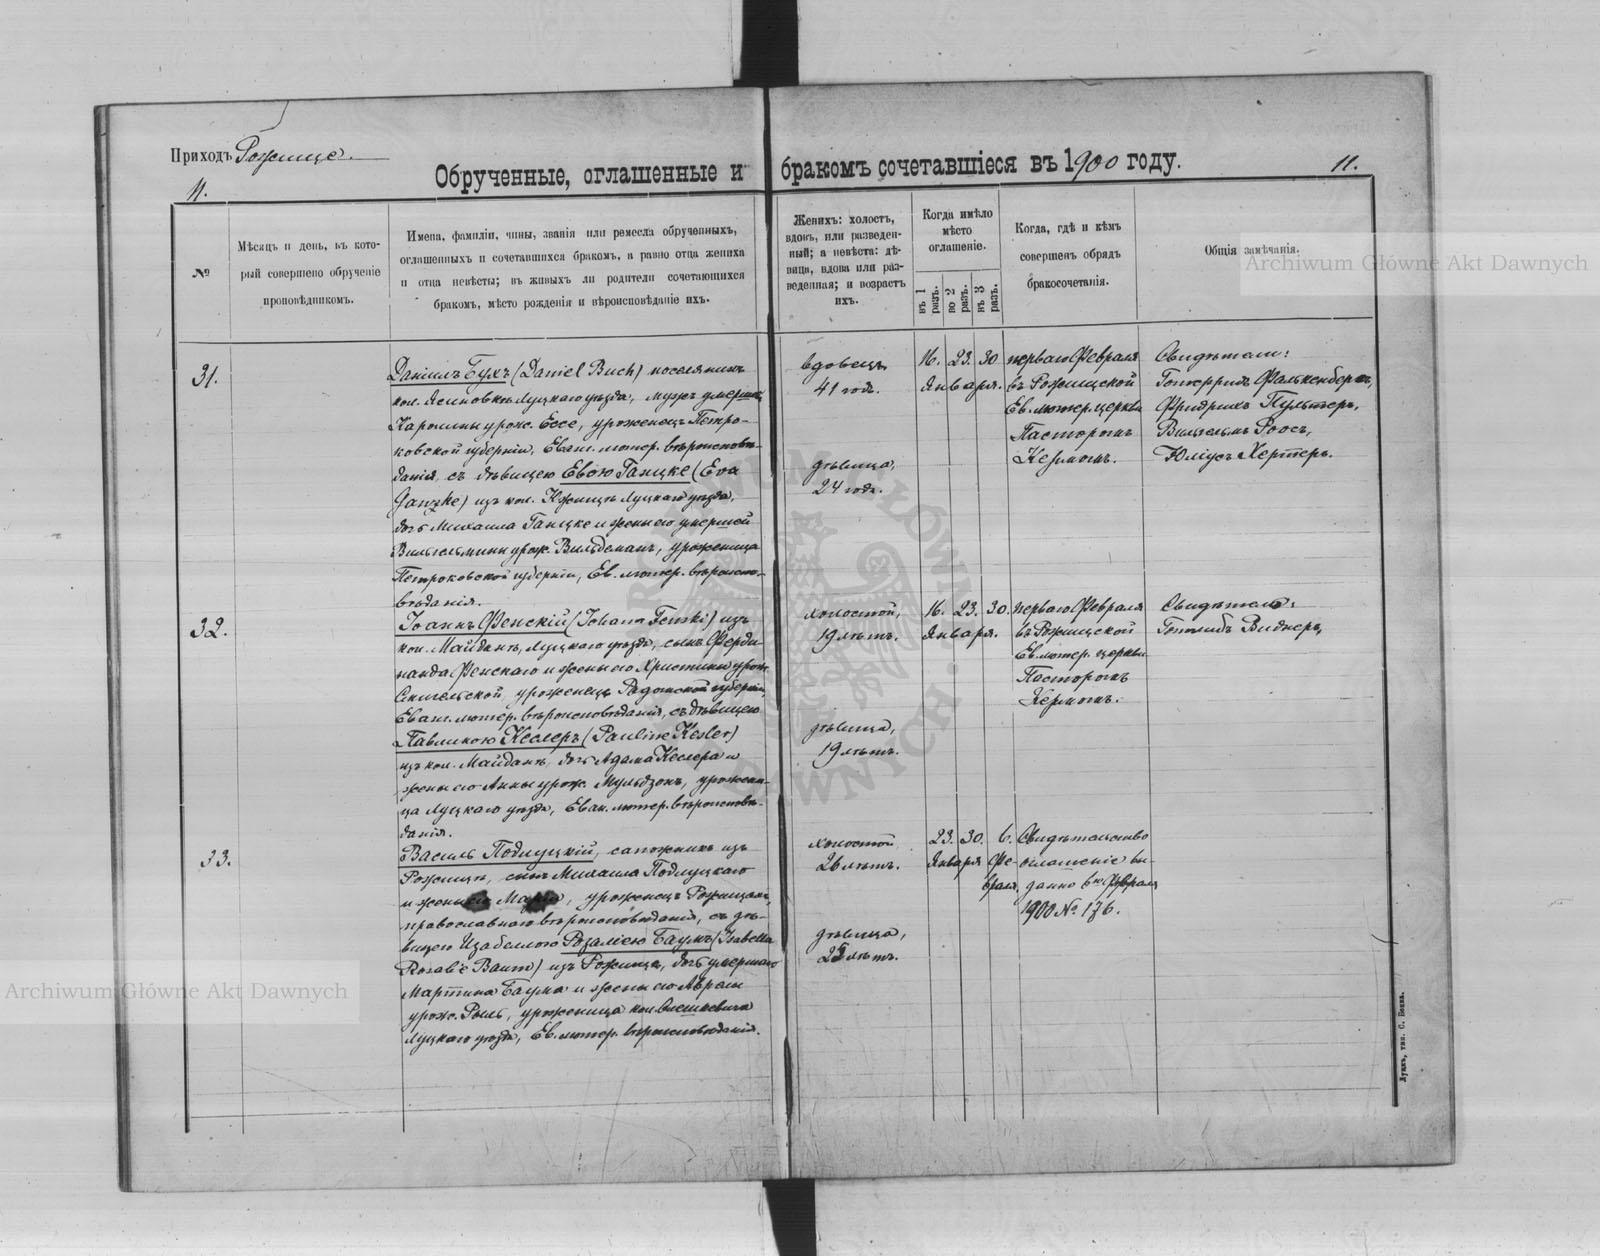 Приходъ Рожище.
11.
Обрученные, оглашенные и бракомъ сочетавшіеся въ 1900 году.
11.
№
Мѣсяцъ и день, въ кото-
рый совершено обрученіе
проповѣдникомъ.
Имена, фамиліи, чины, званія или ремесла обрученныхъ,
оглашенныхъ и сочетавшихся бракомъ, а равно отца жениха
и отца невѣсты; въ живыхъ ли родители сочетающихся
бракомъ, мѣсто рожденія и вѣроисповѣданіе ихъ.
Женихъ: холостъ,
вдовъ, или разведен-
ный; а невѣста: дѣ-
вица, вдова или раз-
веденная; и возрастъ
ихъ.
Когда имѣло
мѣсто
оглашеніе.
въ 1 разъ.
во 2 разъ.
въ 3 разъ.
Когда, гдѣ и кѣмъ
совершенъ обрядъ
бракосочетанія.
Общія замѣчанія.
Archiwum Główne Akt Dawnych
31.
Даніилъ Бухъ (Daniel Buch) поселянинъ
кол. Ясиновки Луцкаго уѣзда, мужъ умершей
Каролины урож. Ессе, уроженецъ Петро-
ковской губерніи, Еванг. лютер. вѣроисповѣ-
данія, съ дѣвицею Евою Ганцке (Eva
Ganzke) изъ кол. Луцкаго уѣзда,
дочь Михаила Ганцке и жены его умершей
Вильгельмины урож. Вильдеманъ, уроженица
Петроковской губерніи, Ев. лютер. вѣроиспо-
вѣданія.
вдовецъ
41 годъ.
дѣвица,
24 года.
16. 23. 30
Января.
перваго Февраля
въ Рожищской
Ев. лютер. церкви
Пасторомъ
Кермомъ.
Свидѣтели:
Готфридъ Фалькенбергъ,
Фридрихъ Пультеръ,
Вильгельмъ Роосъ,
Юліусъ Хертеръ.
32.
Іоаннъ Фенскій (Johann Fenski) изъ
кол. Майданъ, Луцкаго уѣзда, сынъ Ферди-
нанда Фенскаго и жены его Христины урож.
уроженецъ Радомской губерніи,
Еванг. лютер. вѣроисповѣданія, съ дѣвицею
Павлиною Кеслеръ (Pauline Kesler)
изъ кол. Майданъ, дочь Адама Кеслера и
жены его Анны урож. Мульдзонъ, урожени-
ца Луцкаго уѣзда, Еван. лютер. вѣроисповѣ-
данія.
холостой,
19 лѣтъ.
дѣвица,
19 лѣтъ.
16. 23. 30.
Января.
перваго Февраля
въ Рожищской
Ев. лютер. церкви
Пасторомъ
Кермомъ.
Свидѣтель:
Готлибъ Виднеръ,
33.
Василь Подлуцкій, сапожникъ изъ
Рожищъ, сынъ Михаила Подлуцкаго
и жены его Маріи, уроженецъ Рожищъ,
православнаго вѣроисповѣданія, съ дѣ-
вицею Изабеллою Розаліею Баумъ (Isabella
Rosalie Baum) изъ Рожища, дочь умершаго
Мартина Баума и жены его
урож. Роль, уроженица кол.
Луцкаго уѣзда, Ев. лютер. вѣроисповѣданія.
холостой
26 лѣтъ.
дѣвица,
лѣтъ.
23. 30. 6.
Января Фе-
враля
Свидѣтельство
оглашеніе вы-
дано 6го Февраля
1900 № 176.
Archiwum Główne Akt Dawnych
Луцкъ, тип. С. Бокка.
ARCHIWUM GŁÓWNE AKT DAWNYCH